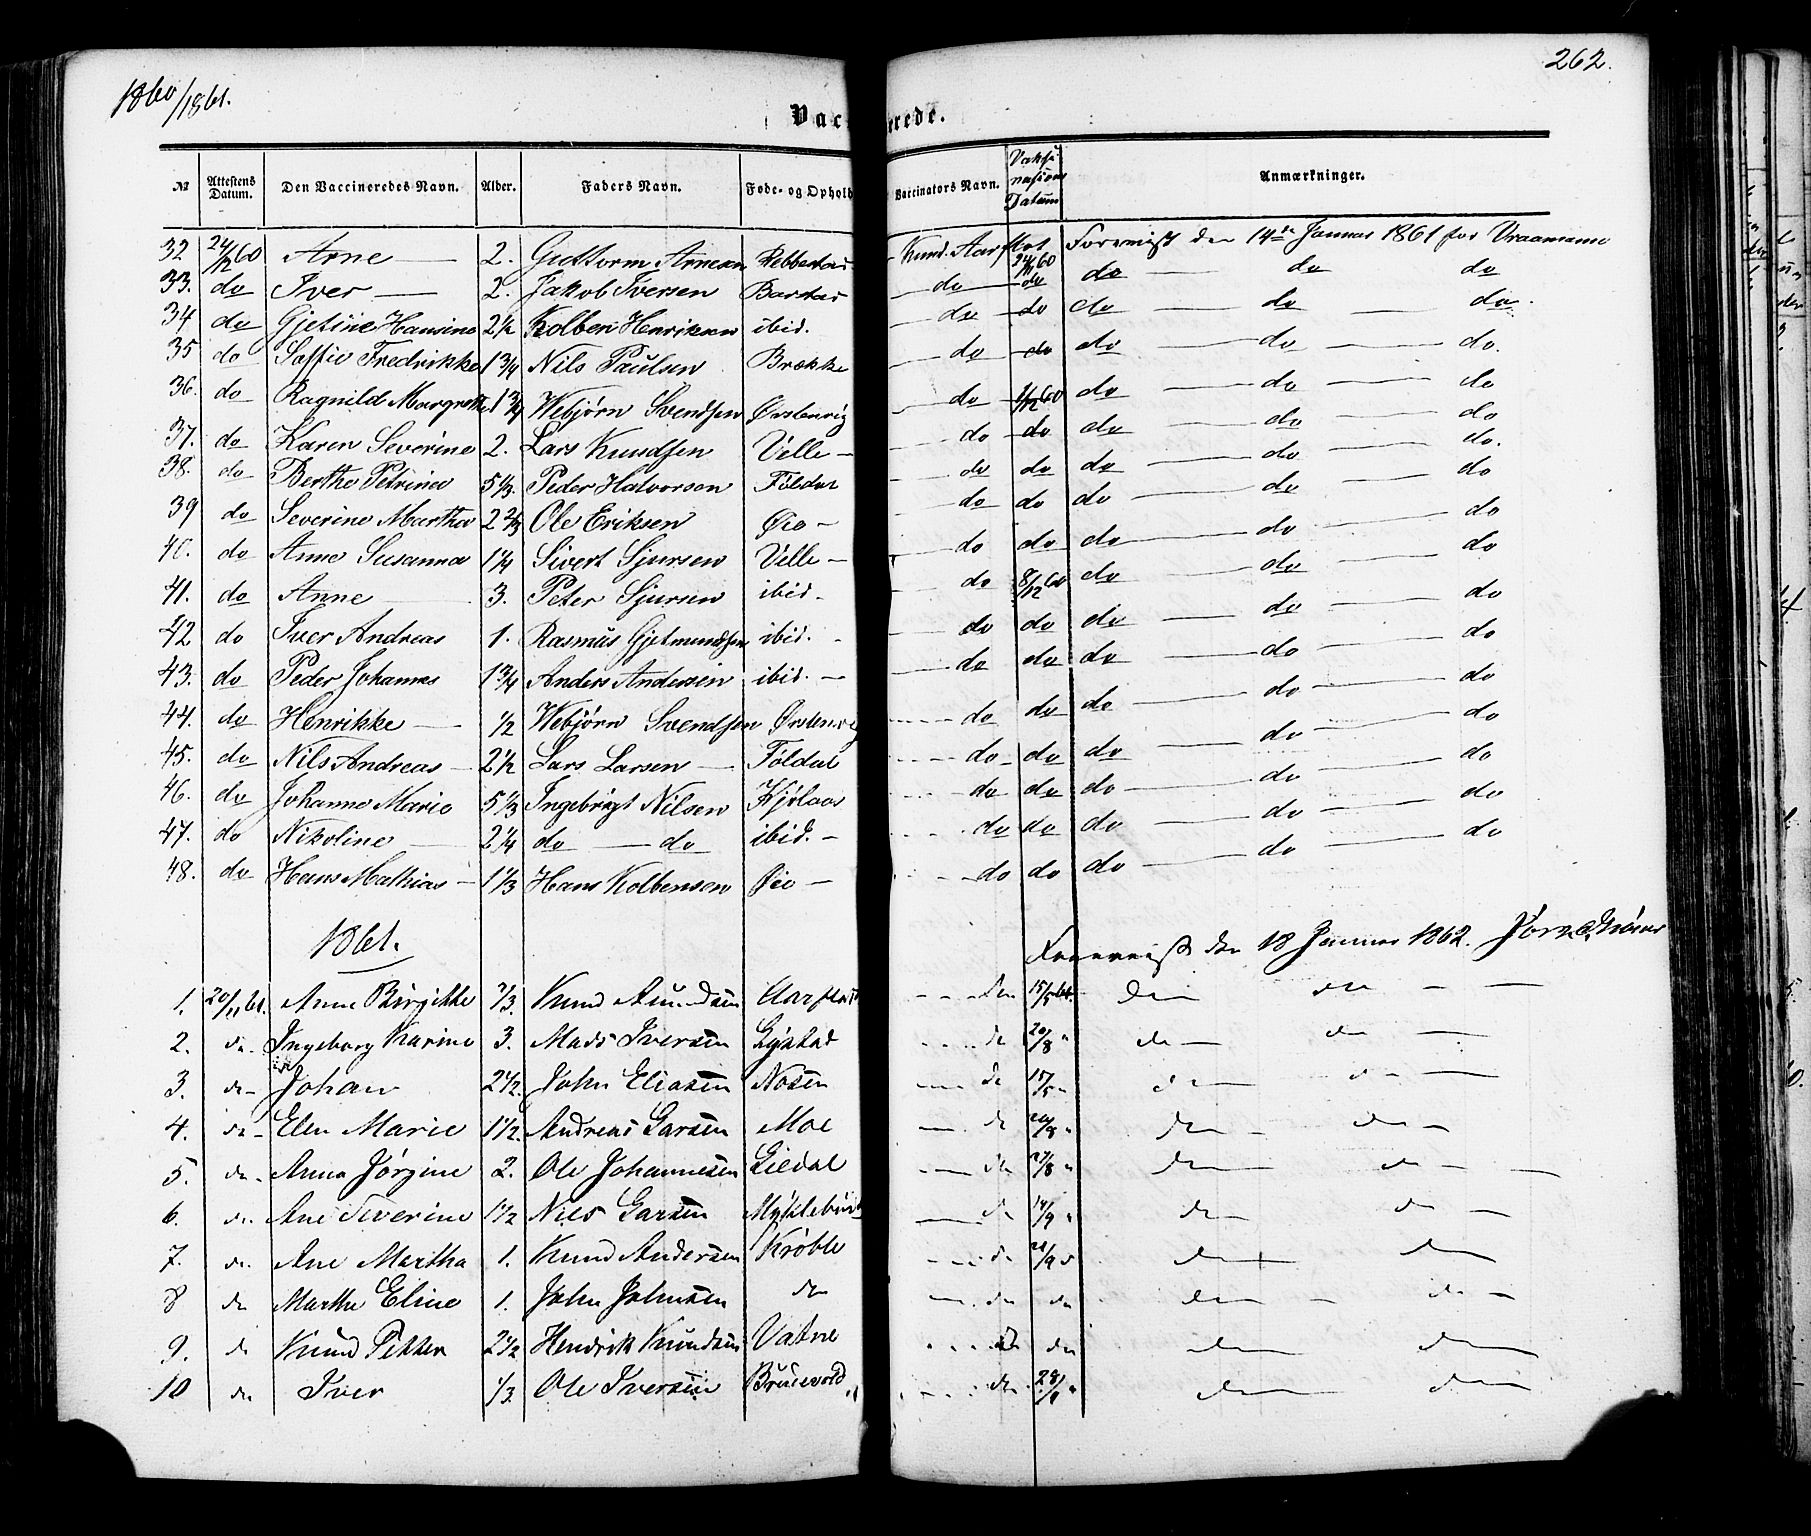 1860/1861.
262.
Vac erede.
№ Attestens Datum. Den Vaccineredes Navn. Alder. Faders Navn. Føde- og Ophold Vaccinators Navn. Datum Anmærkninger.
32 24/12 60 Arne — 2. Guttorm Arnesen Knud Aarflot 24/11 60 Foreviist den 14de Januar 1861 for
33. do Iver — 2. Jakob Iversen Barstad — do — do do — do do
34 do Gjetine Hansine 2 1/2 Kolben Henriksen ibid. — do — do do — do do.
35 do Soffie Fredrikke 1 3/4 Nils Paulsen Brække — do — do do — do — do.
36. do Ragnild Margrethe 1 3/4 Webjørn Svendsen Ørstenvig — do 1/12 60 do — do — do
37. do Karen Severine 2. Lars Knudsen Velle — do — do do — do — do
38. do Berthe Petrine 5 1/3. Peder Halvorsen Føldal — do do do — do — do.
39 do Severine Martha 2 2/3 Ole Eriksen Øie — — do do do — do — do
40. do Anne Susanna 1 1/4 Sivert Sjursen Velle — — do do do — do — do
41. do Anne — 3. Peter Sjursen ibid. — do 8/12 60 do — do — do
42 do Iver Andreas 1. Rasmus Gjetmundsen ibid. — do do do — do — do
43. do Peder Johannes 1 3/4 Anders Andersen ibid. — — do do do — do — do
44. do Henrikke — 1/2 Webjørn Svendsen Ørstenvig — do do do — do — do
45. do Nils Andreas — 2 1/2 Lars Larsen — Føldal — do do do — do — do
46. do Johanne Marie 5 1/3 Ingebrigt Nilsen Kjølaas — do do do — do — do
47. do Nikoline — 2 1/4 do — do ibid. — — do do do — do — do
48. do Hans Mathias — 1 1/3 Hans Kolbensen Øie — — do do do — do — do
1861.
den 18 Januar 1862.
1. 20/11 61. Anne Birgitte 2/3. Knud Amundsen Aarflot — do 15/5 61. do do —
2. do. Ingeborg Karine 3. Mads Iversen Lystad — do 20/8 " do — do —
3. do — Johan 2 1/2. John Eliasen Nosen — do 15/5 " do — do —
4. do — Elen Marie 1 1/2. Andreas Larsen Moe — do 20/8 " do — do —
5. do. Anna Jørgine 2. Ole Johannesen Liedal — do 27/8 " do — do —
6. do. Ane Severine 1 1/2 Nils Larsen Myklebust — do 14/9 " do — do —
7. do. Ane Martha 1. Knud Andersen Krøvle — do 21/9 " do — do —
8 do Marthe Eline 1. John Johnsen do — do do do — do —
9. do Knud Petter 2 1/2 Hendrik Knudsen Vatne — do do do — do —
10 do Iver 1/3. Ole Iversen Bruevold — do 28/9 " do — do —